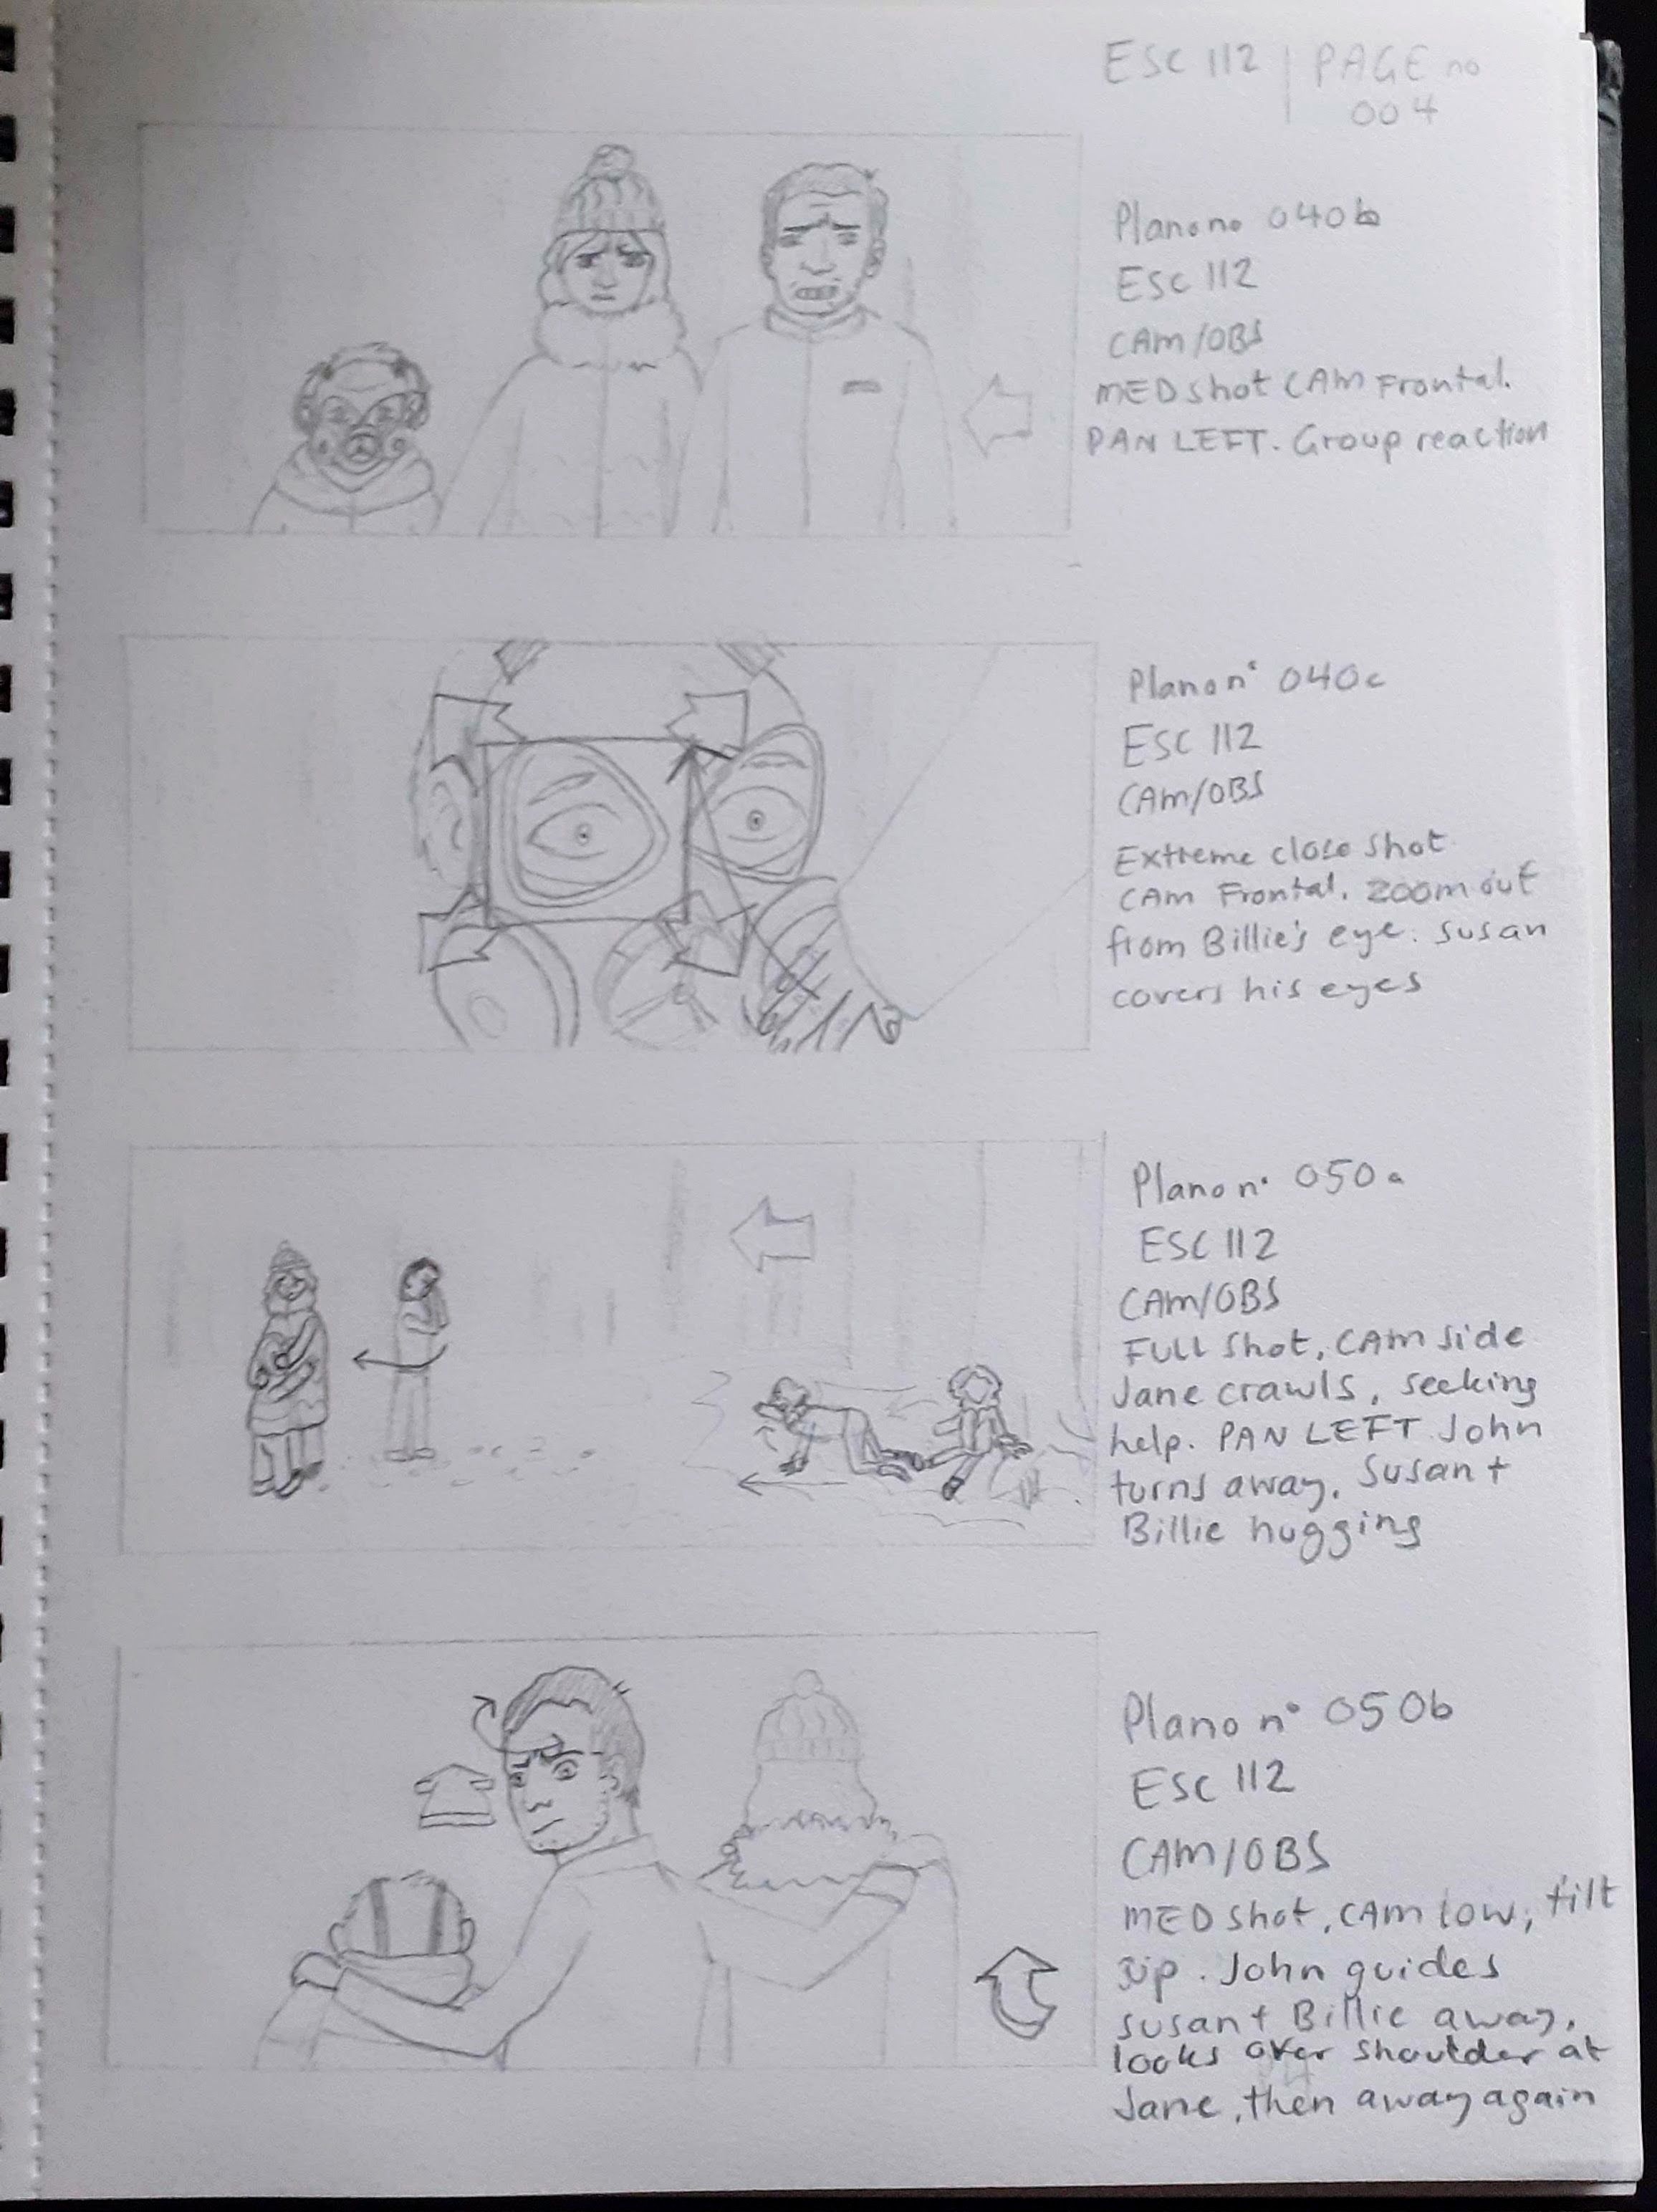 ESC 112 | PAGE no
004
Plano no 040b
ESC 112
CAM/OBS
MED shot CAM Frontal.
PAN LEFT. Group reaction
Plano n° 040c
ESC 112
CAM/OBS
Extreme close shot
CAM Frontal. zoom out
from Billie's eye. Susan
covers his eyes
Plano n° 050a
ESC 112
CAM/OBS
Full shot, CAM side
Jane crawls, seeking
help. PAN LEFT John
turns away, Susan +
Billie hugging
Plano n° 050b
ESC 112
CAM/OBS
MED shot, CAM low, tilt
up. John guides
Susan + Billie away,
looks over shoulder at
Jane, then away again